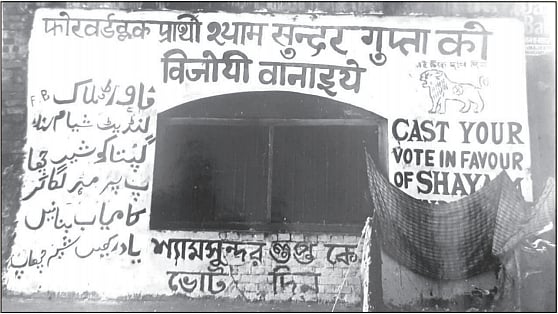 फोरवर्डब्लक प्रार्थी श्याम सुन्दर गुप्ता को
विजोयी वानाइये
فارورڈ بلاک F.B
شیام
گپتا کو شیر چھا
پ پر مہر لگا کر
کامیاب بنائیں
یاد رکھیں شیر چھاپ
CAST YOUR
VOTE IN FAVOUR
OF SHAYA
শ্যামসুন্দর গুপ্ত কে
ভোট দিন